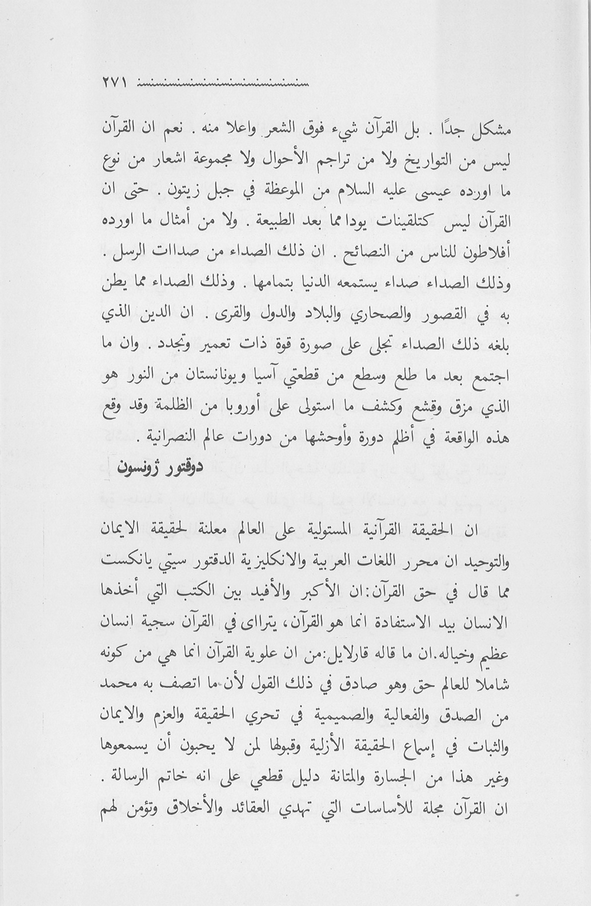 ٢٧١
مشكل جدًا . بل القرآن شيء فوق الشعر واعلا منه . نعم ان القرآن
ليس من التواريخ ولا من تراجم الأحوال ولا مجموعة اشعار من نوع
ما اورده عيسى عليه السلام من الموعظة في جبل زيتون . حتى ان
القرآن ليس كتلقينات يودا مما بعد الطبيعة . ولا من أمثال ما اورده
أفلاطون للناس من النصائح . ان ذلك الصداء من صداات الرسل .
وذلك الصداء صداء يستمعه الدنيا بتمامها . وذلك الصداء مما يطن
به في القصور والصحاري والبلاد والدول والقرى . ان الدين الذي
بلغه ذلك الصداء تجلى على صورة قوة ذات تعمير وتجدد . وان ما
اجتمع بعد ما طلع وسطع من قطعتي آسيا ويونانستان من النور هو
الذي مزق وقشع وكشف ما استولى على أوروبا من الظلمة وقد وقع
هذه الواقعة في أظلم دورة وأوحشها من دورات عالم النصرانية .
دوقتور ژونسون
ان الحقيقة القرآنية المستولية على العالم معلنة لحقيقة الايمان
والتوحيد ان محرر اللغات العربية والانكليزية الدقتور سيتي يانكست
مما قال في حق القرآن:ان الأكبر والأفيد بين الكتب التي أخذها
الانسان بيد الاستفادة انما هو القرآن، يتراای في القرآن سجية انسان
عظيم وخياله.ان ما قاله قارلايل:من ان علوية القرآن انما هي من كونه
شاملا للعالم حق وهو صادق في ذلك القول لأن ما اتصف به محمد
من الصدق والفعالية والصميمية في تحري الحقيقة والعزم والايمان
والثبات في إسماع الحقيقة الأزلية وقبولها لمن لا يحبون أن يسمعوها
وغير هذا من الجسارة والمتانة دليل قطعي على انه خاتم الرسالة .
ان القرآن مجلة للأساسات التي تهدي العقائد والأخلاق وتؤمن لهم